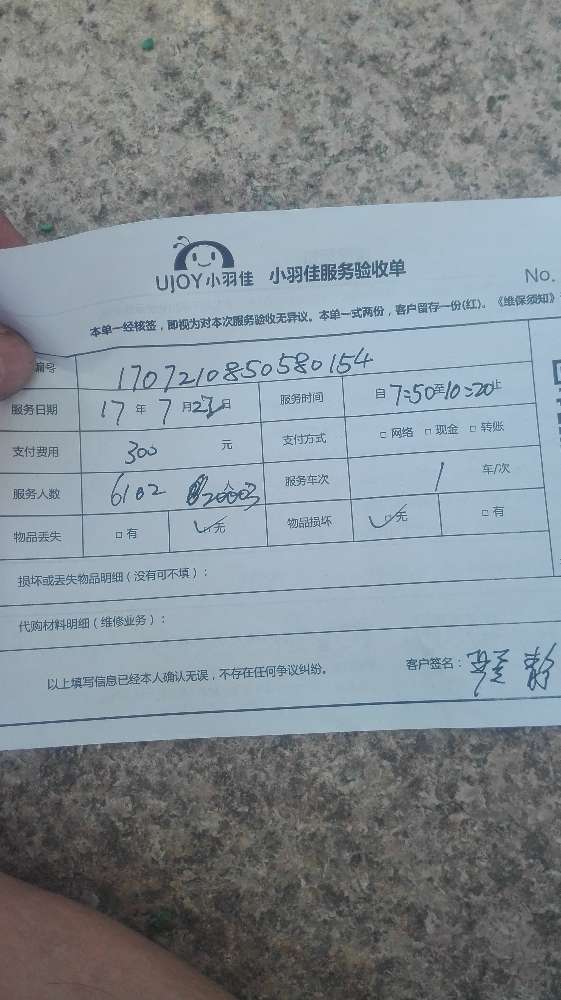 UJOY小羽佳 小羽佳服务验收单
No.
本单一经核签，即视为对本次服务验收无异议。本单一式两份，客户留存一份(红)。《维保须知》
编号 1707210850580154
服务日期 17 年 7 月 日 服务时间 自7:50至10:20止
支付费用 300 元 支付方式 □ 网络 □ 现金 □ 转账
服务人数 6102 人 服务车次 1 车/次
物品丢失 □ 有 □ 无 物品损坏 □ 无 □ 有
损坏或丢失物品明细（没有可不填）：
代购材料明细（维修业务）：
以上填写信息已经本人确认无误，不存在任何争议纠纷。 客户签名： 静